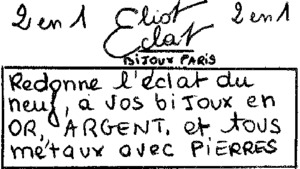 2 en 1 Eliot 2 en 1
Eclat
BIJOUX PARIS
Redonne l'éclat du
neuf, à vos biJoux en
OR, ARGENT, et tous
métaux avec PIERRES